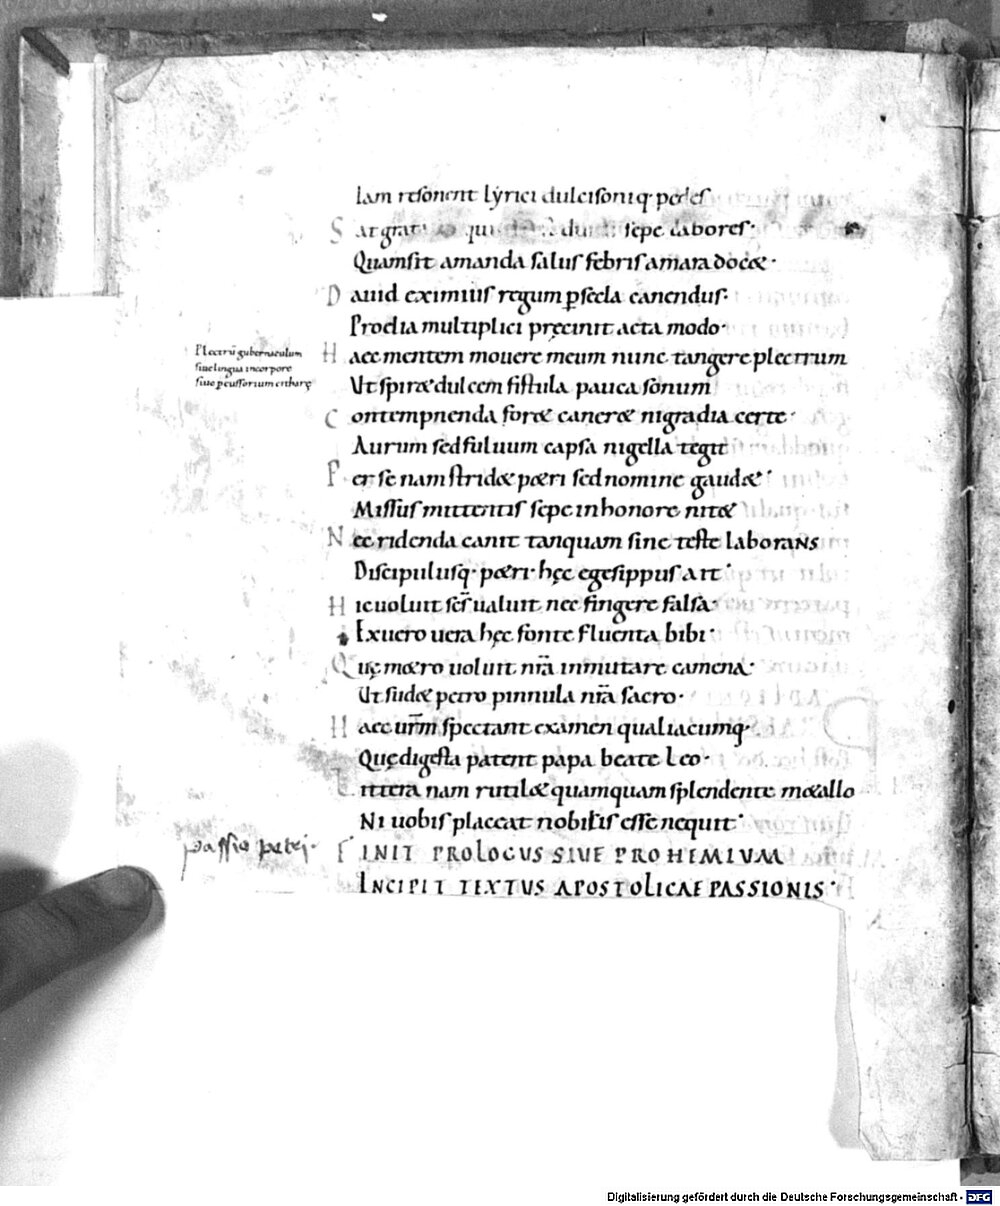 Iam resonent lyrici dulcisoniq· pedes
S at grat qui sepe labores·
Quam sit amanda salus febris amara docet·
D auid eximius regum p̱ secla canendus·
Proelia multiplici pręcinit acta modo·
Plectrū gubernaculum
siue lingua in corpore
siue pcussorium citharę
H aec mentem mouere meum nunc tangere plectrum
Ut spiret dulcem fistula pauca sonum
C ontempnenda foret caneret ni gradia certe·
Aurum sed fuluum capsa nigella tegit
P er se nam stridet poetri sed nomine gaudet·
Missus mittentis sepe in honore nitet
N ec ridenda canit tanquam sine teste laborans
Discipulusq· petri· hęc egesippus ait·
H ic uoluit scs̄ ualuit nec fingere falsa·
Ex uero uera hęc fonte fluenta bibi·
Q uę metro uoluit nr̄a inmutare camena·
Ut sudet petro pinnula nr̄a sacro·
H aec ur̄m spectant examen qualiacumq·
Quę digesta patent papa beate leo·
L ittera nam rutilet quamquam splendente metallo
Ni uobis placeat nobilis esse nequit·
passio petri·
FINIT PROLOGUS SIUE PROHEMIUM
INCIPIT TEXTUS APOSTOLICAE PASSIONIS·
Digitalisierung gefördert durch die Deutsche Forschungsgemeinschaft - DFG